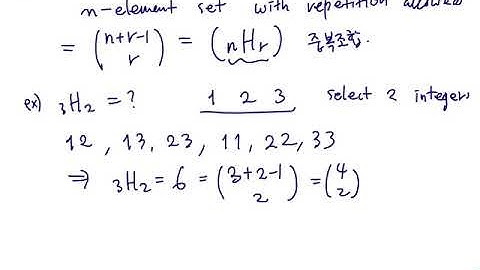 n-element set with repetition allowed
= (n+r-1 r) = (nHr) 중복조합.
ex) 3H2 = ? 1 2 3 select 2 integers
12, 13, 23, 11, 22, 33
⇒ 3H2 = 6 = (3+2-1 2) = (4 2)